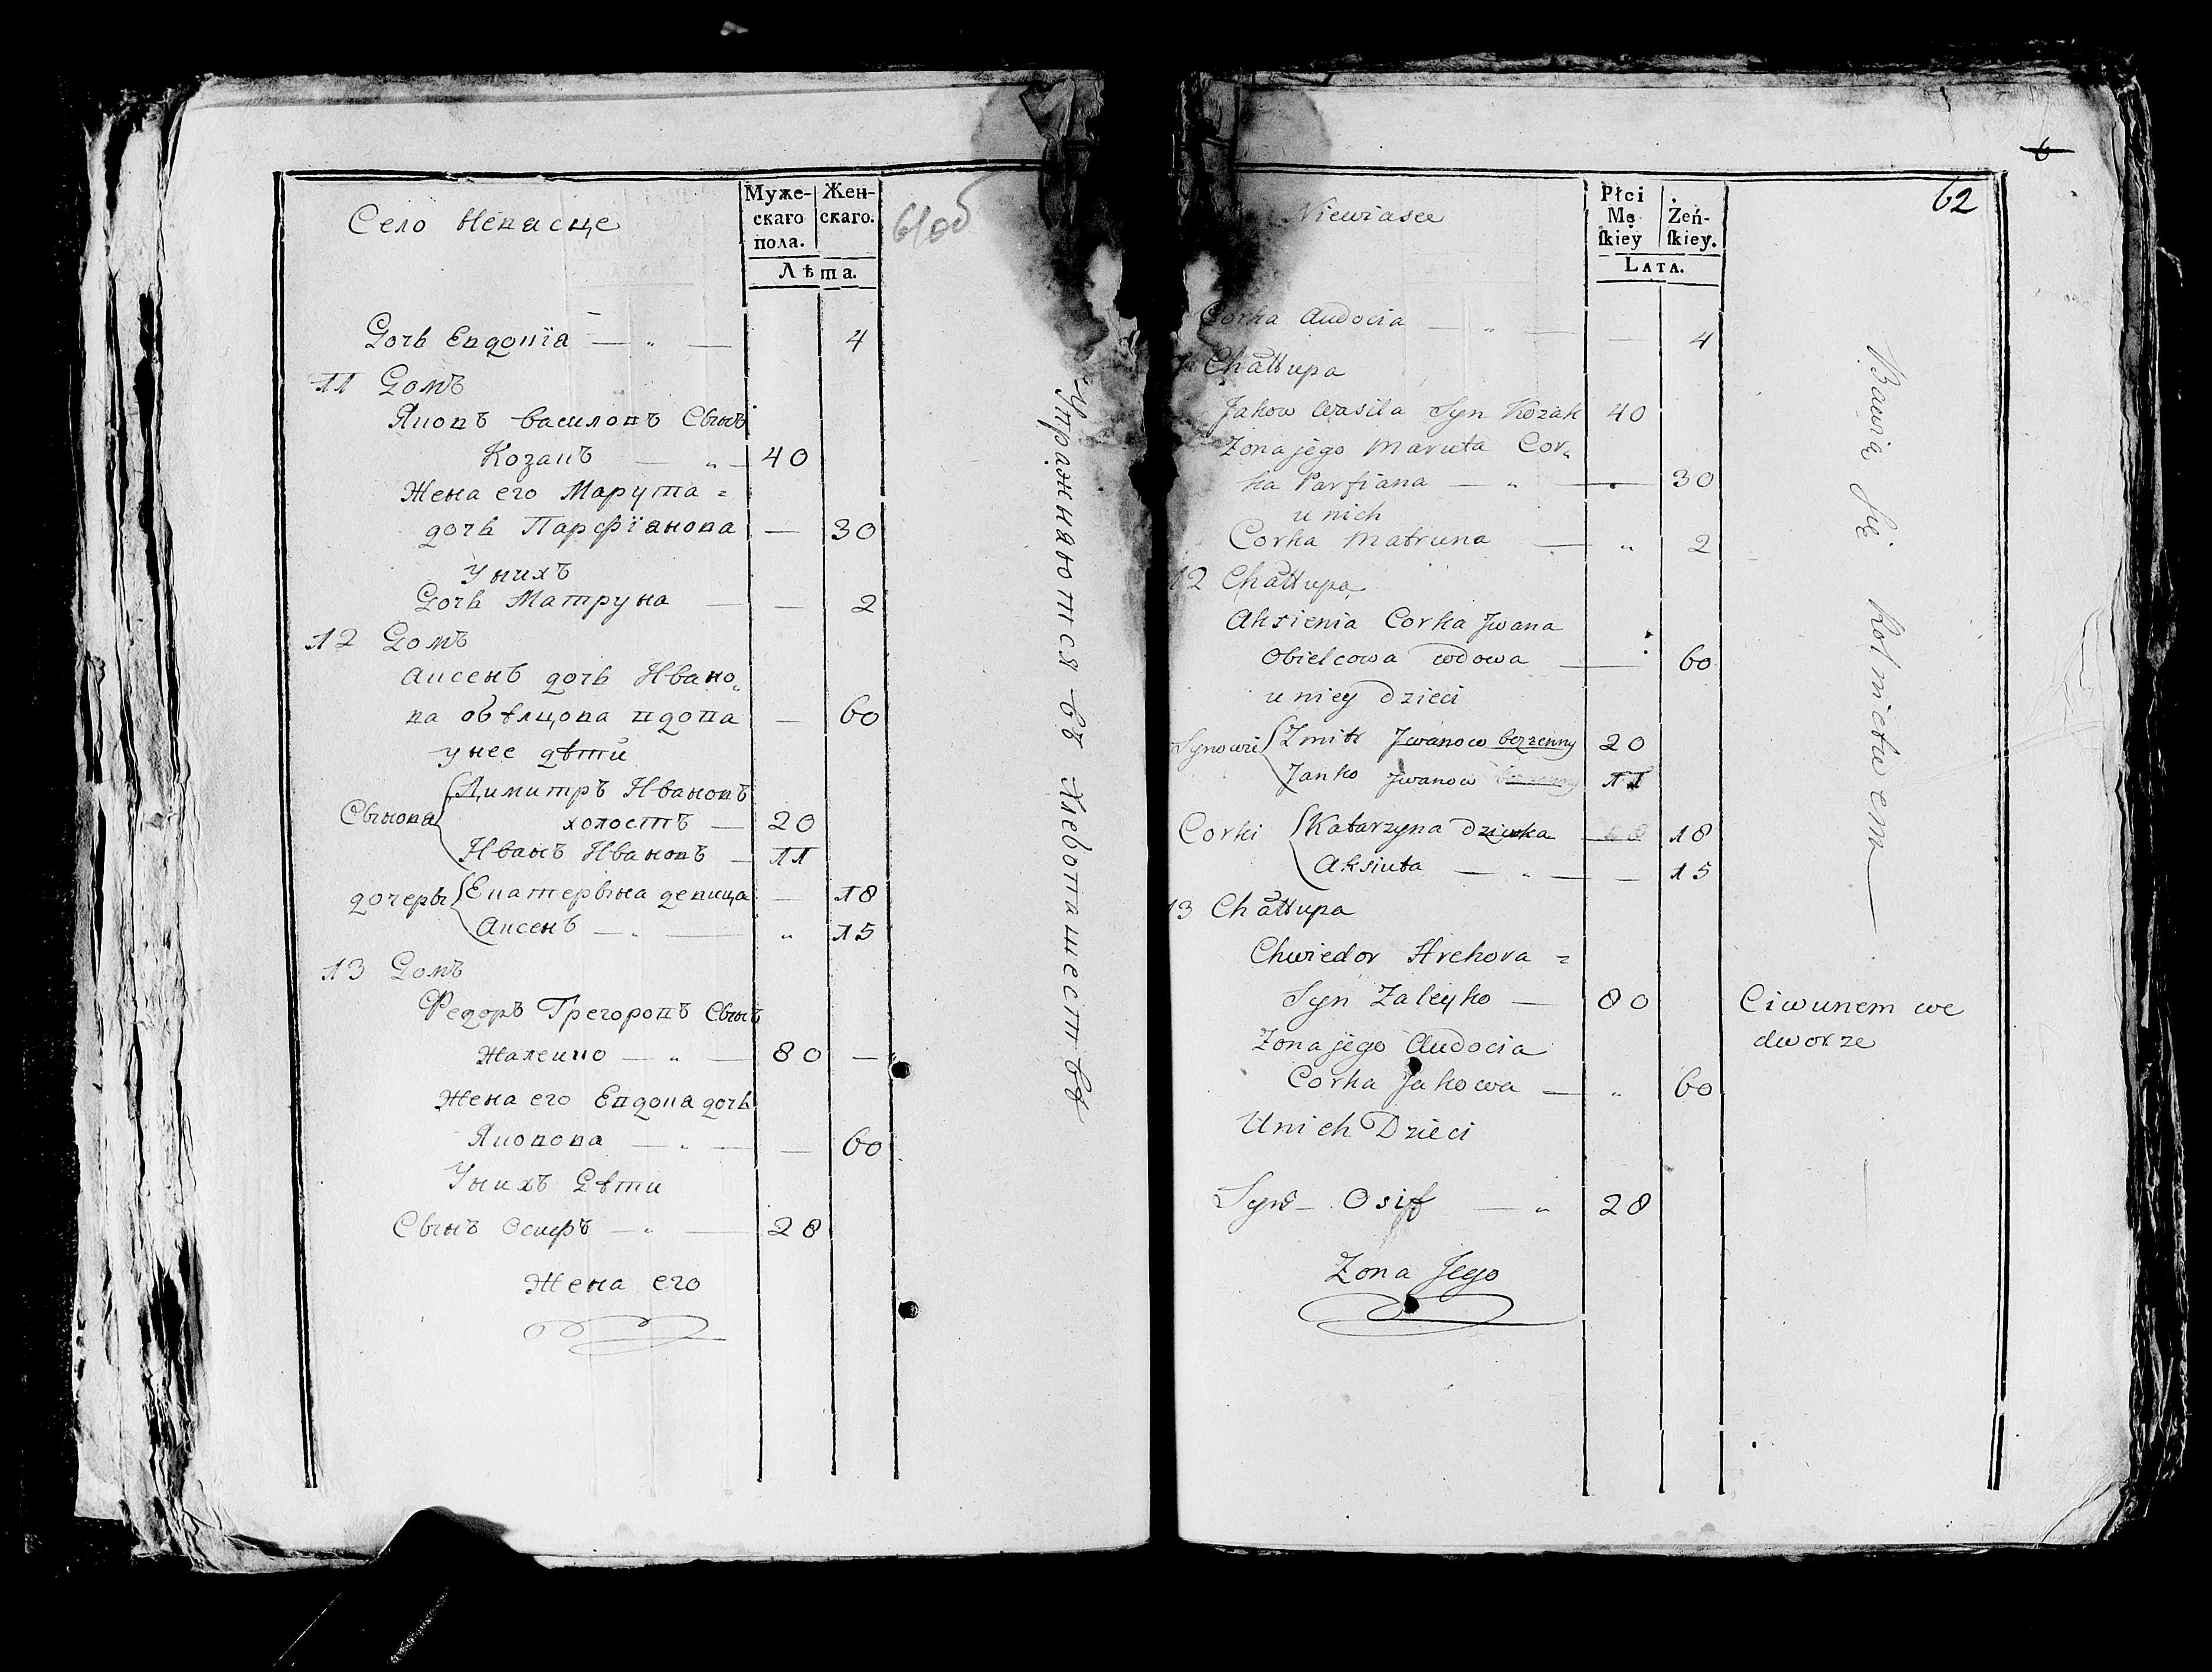 Село Невясце
Муже-
скаго
пола.
Жен-
скаго.
Лѣта.
61об
Дочь Евдокїя — „ — 4
11 Домъ
Яковъ Василовъ Сынъ
Козакъ — „ — 40
Жена его Марута =
дочь Парфїянова — 30
У нихъ
Дочь Матруна — — 2
12 Домъ
Аксенъ дочь Ивано„
ва обѣлцова вдова — 60
у нее дѣти
Сынова Димитръ Ивановъ
холостъ — 20
Иванъ Ивановъ — 11
дочеры Екатерына девица — 18
Аксенъ — „ — „ 15
13 Домъ
Федоръ Грегоровъ Сынъ
Жалейко — „ — 80 — „
Жена его Евдока дочь
Яковова — „ — — 60
У нихъ Дѣти
Сынъ Осифъ — „ — 28
Жена его
Упражняются въ хлебопашествѣ
6
62
Niewiasce
Płci
Mę
ſkiey
Żeń-
ſkiey.
LATA.
Corka Audocia — „ — — 4
Chałłupa
Jakow Wasila Syn Kozak 40
Zona jego Maruta Cor„
ka Parfiana — „ — 30
u nich
Corka Matruna — „ 2
12 Chałłupa
Aksienia Corka Jwana
Obielcowa wdowa — 60
u niey dzieci
Synowie Zmitr Jwanow bezzenny 20
Janko Jwanow 11
Corki Katarzyna Dziewka — 18
Aksiuta — „ — — 15
13 Chałłupa
Chwiedor Hrehora =
Syn Zaleyko — 80
Ciwunem we
dworze
Zona jego Audocia
Corka Jakowa — „ 60
U nich Dzieci
Syn – Osiff — „ 28
Zona Jego
Bawią się Rolnictwem —